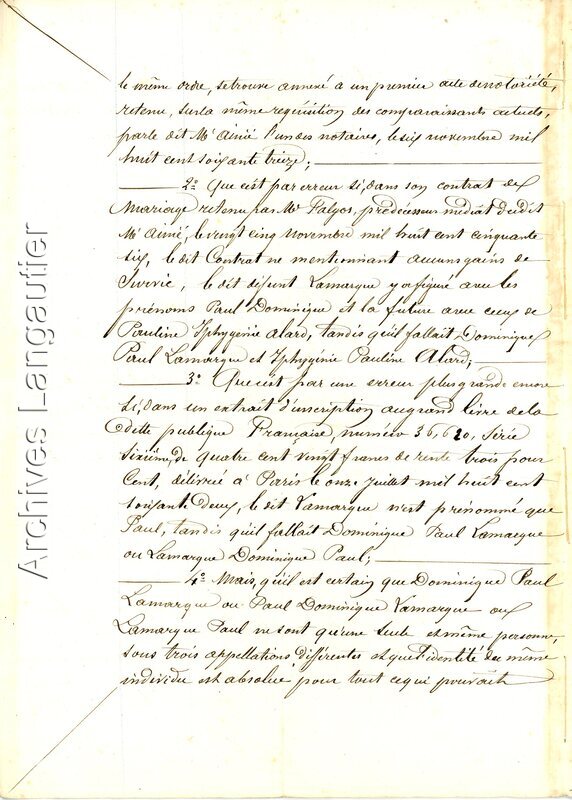 le même ordre, se trouve annexé à un premier acte de notoriété,
retenu, sur la même réquisition des comparaissants actuels,
par le dit Me Aimé l'un des notaires, le six novembre mil
huit cent soixante treize;
2o Que c'est par erreur si, dans son contrat de
Mariage retenu par Me Palyos, prédécesseur médiat du dit
Me Aimé, le vingt cinq Novembre mil huit cent cinquante
six, le dit Contrat ne mentionnant aucuns gains de
Survie, le dit défunt Lamarque y a figuré avec les
prénoms Paul Dominique et la future avec ceux de
Pauline Iphygénie Alard, tandis qu'il fallait Dominique
Paul Lamarque et Iphygénie Pauline Alard;
3o Que c'est par une erreur plus grande encore
si, dans un extrait d'inscription au grand livre de la
dette publique Française, numéro 36,620, Série
sixième, de quatre cent vingt francs de rente trois pour
Cent, délivrée à Paris le onze Juillet mil huit cent
soixante deux, le dit Lamarque n'est prénommé que
Paul, tandis qu'il fallait Dominique Paul Lamarque
ou Lamarque Dominique Paul;
4o Mais, qu'il est certain que Dominique Paul
Lamarque ou Paul Dominique Lamarque ou
Lamarque Paul ne sont qu'une seule et même personne,
sous trois appellations différentes et que l'identité du même
individu est absolue pour tout ce qui pourrait
Archives Langautier